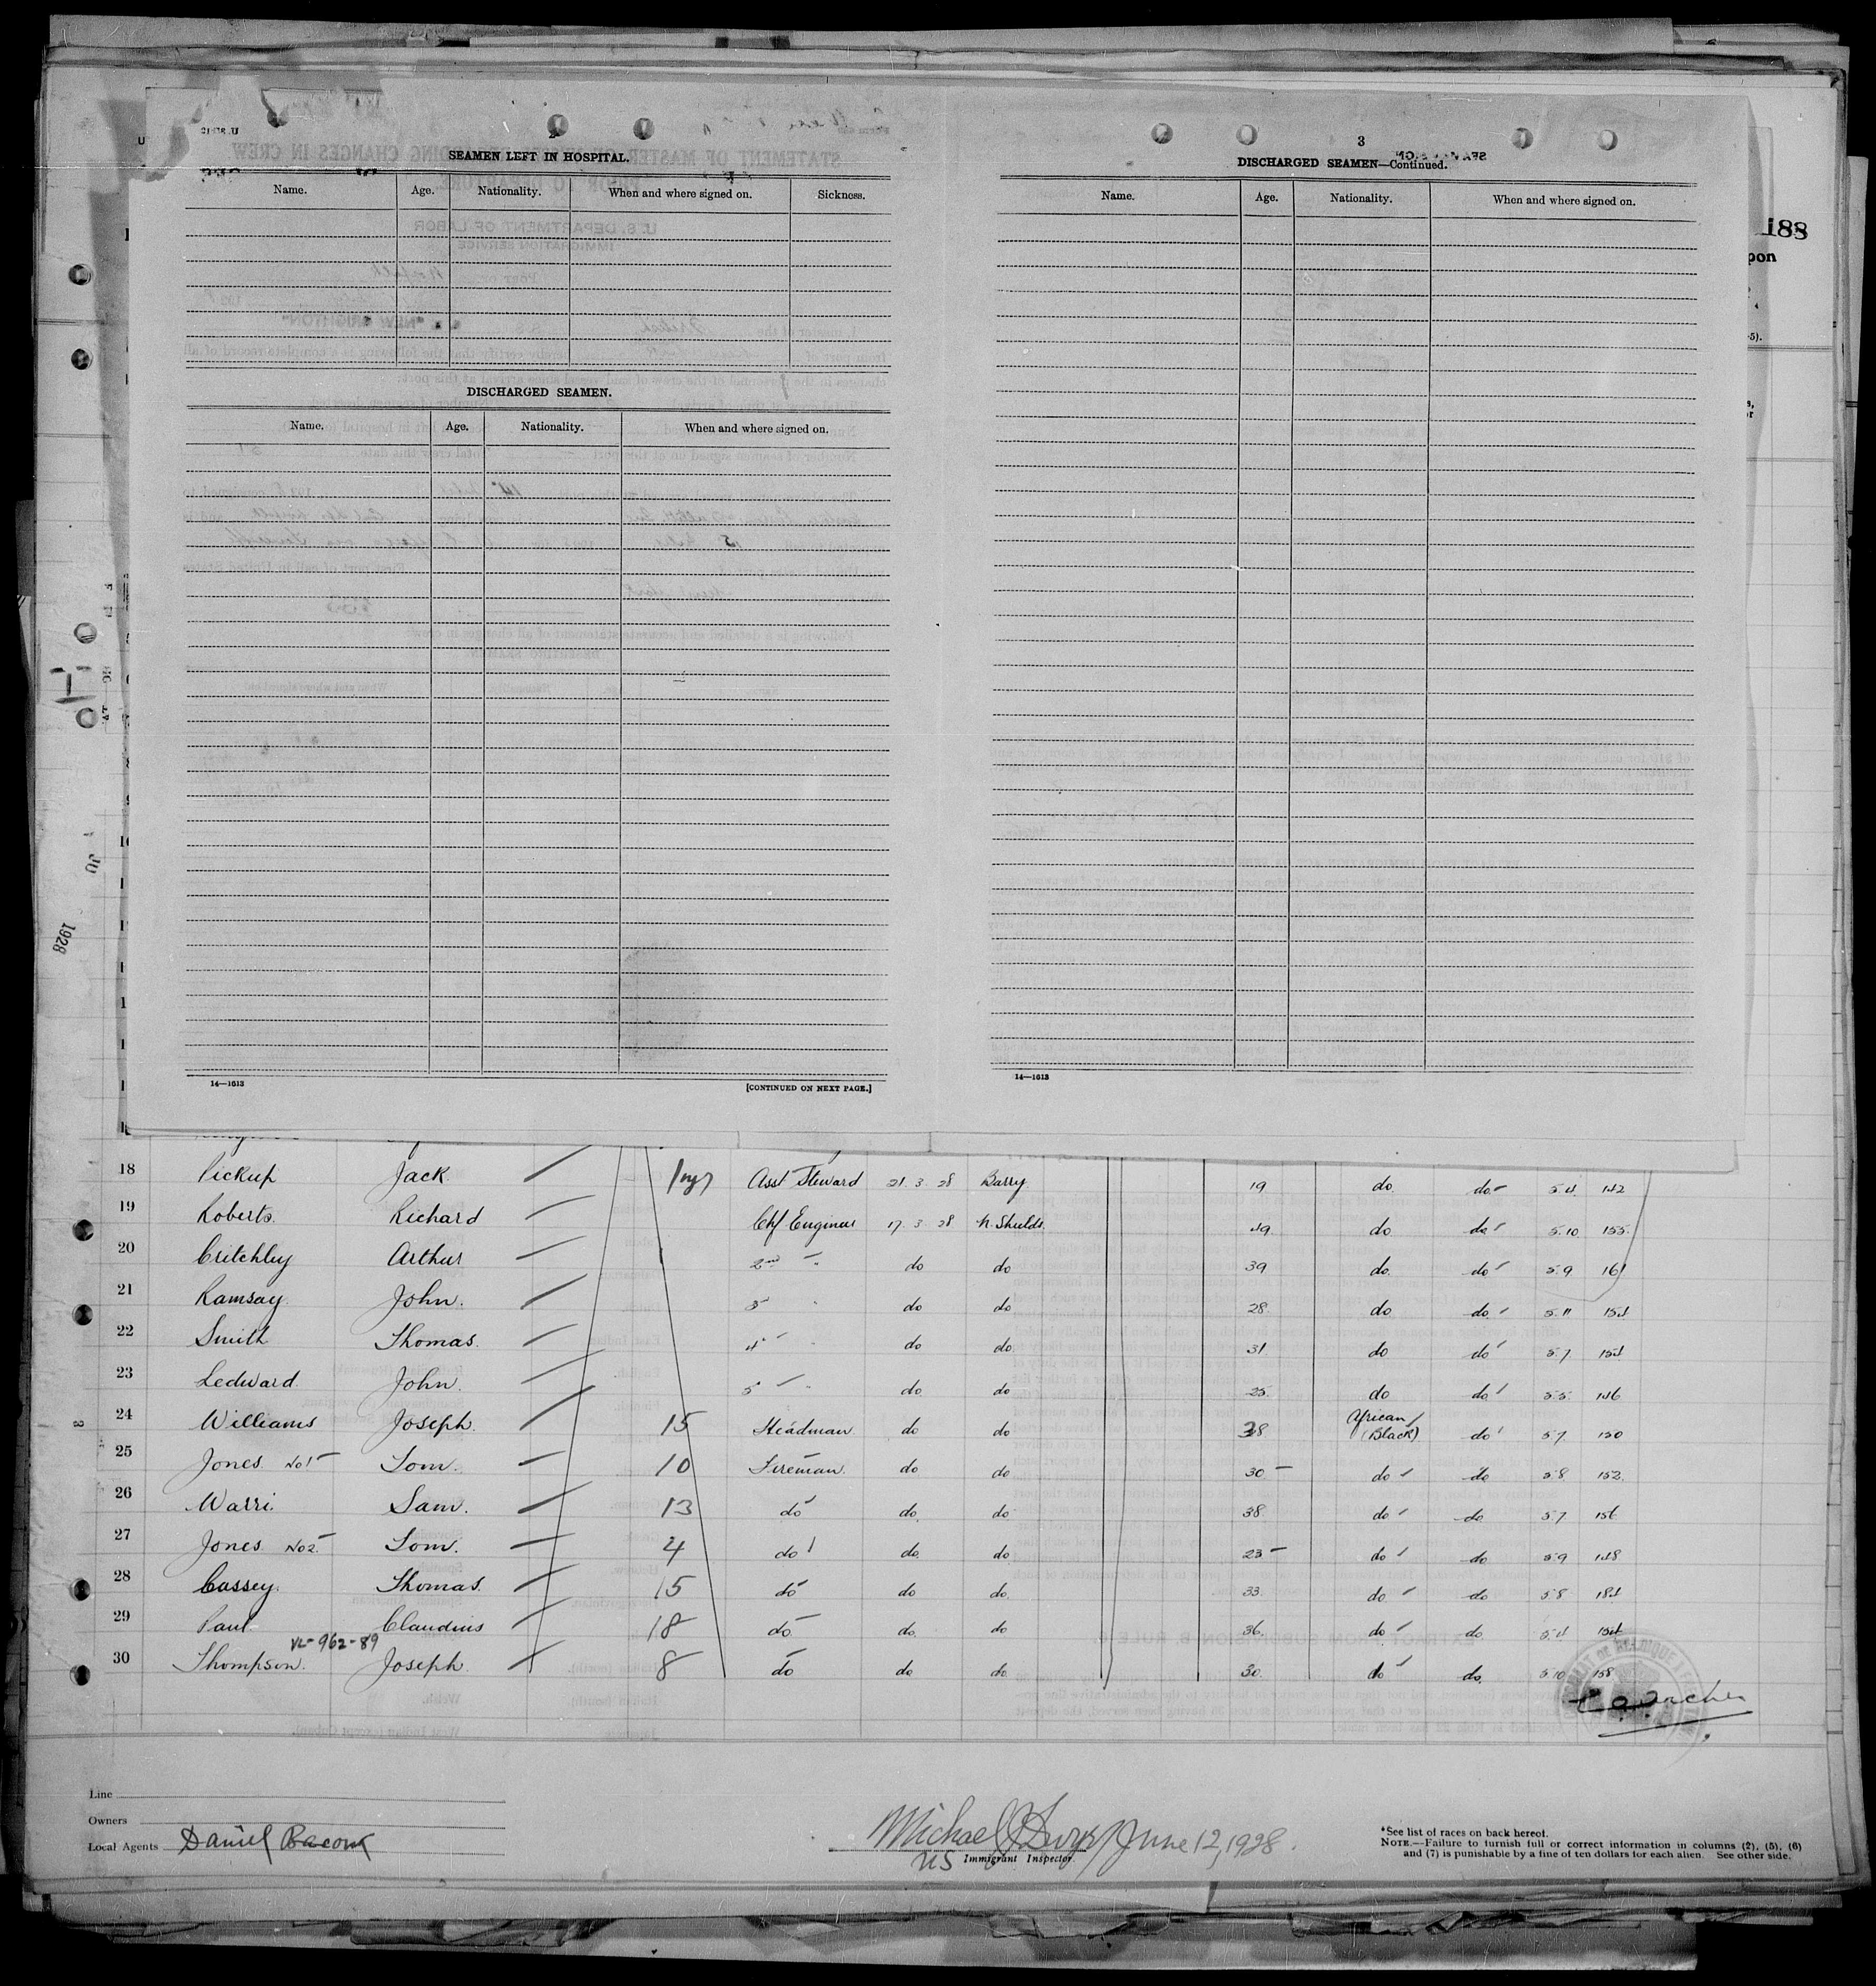 2
SEAMEN LEFT IN HOSPITAL.
Name. Age. Nationality. When and where signed on. Sickness.
DISCHARGED SEAMEN.
Name. Age. Nationality. When and where signed on.
14—1613 [CONTINUED ON NEXT PAGE.]
3
DISCHARGED SEAMEN—Continued.
Name. Age. Nationality. When and where signed on.
14—1613
188
pon
1928
18 Pickup Jack. Asst Steward 21. 3. 28 Barry. 19 do. do 5.4 142
19 Roberts. Richard Chf Engineer 17 3 28 N. Shields. 49 do do 5.10 155.
20 Critchley Arthur 2nd " do do 39 do. do 5.9 161
21 Ramsay. John. 3 " do do 28 do do 5.11 154
22 Smith Thomas. 4 " do do. 31 do do 5.7 154
23 Ledward. John. 5 " do do 25 do do 5.5. 146
24 Williams Joseph. 15 Headman. do do 38 African (Black) do 5.7 150
25 Jones. No1 Tom. 10 Fireman. do do 30 do do 5.8 152.
26 Warri. Sam. 13 do do. do 38 do do 5.7 156
27 Jones. No2. Tom. 4 do do. do. 23 do do 5.9 148
28 Cassey. Thomas. 15 do do do. 33. do do 5.8 184
29 Paul Claudius 18 do do. do 36. do do. 5.4 154
VL-962-89
30 Thompson. Joseph. 8 do do. do. 30. do do. 5.10 158
Line
Owners
Local Agents Daniel Bacon
Michael J June 12, 1928.
US Immigrant Inspector.
*See list of races on back hereof.
NOTE.—Failure to furnish full or correct information in columns (2), (5), (6)
and (7) is punishable by a fine of ten dollars for each alien. See other side.